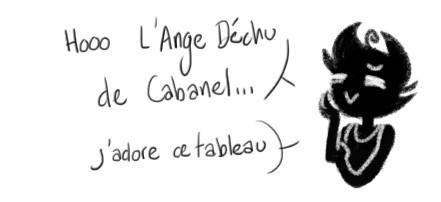 Hooo L'Ange Déchu
de Cabanel...
j'adore ce tableau